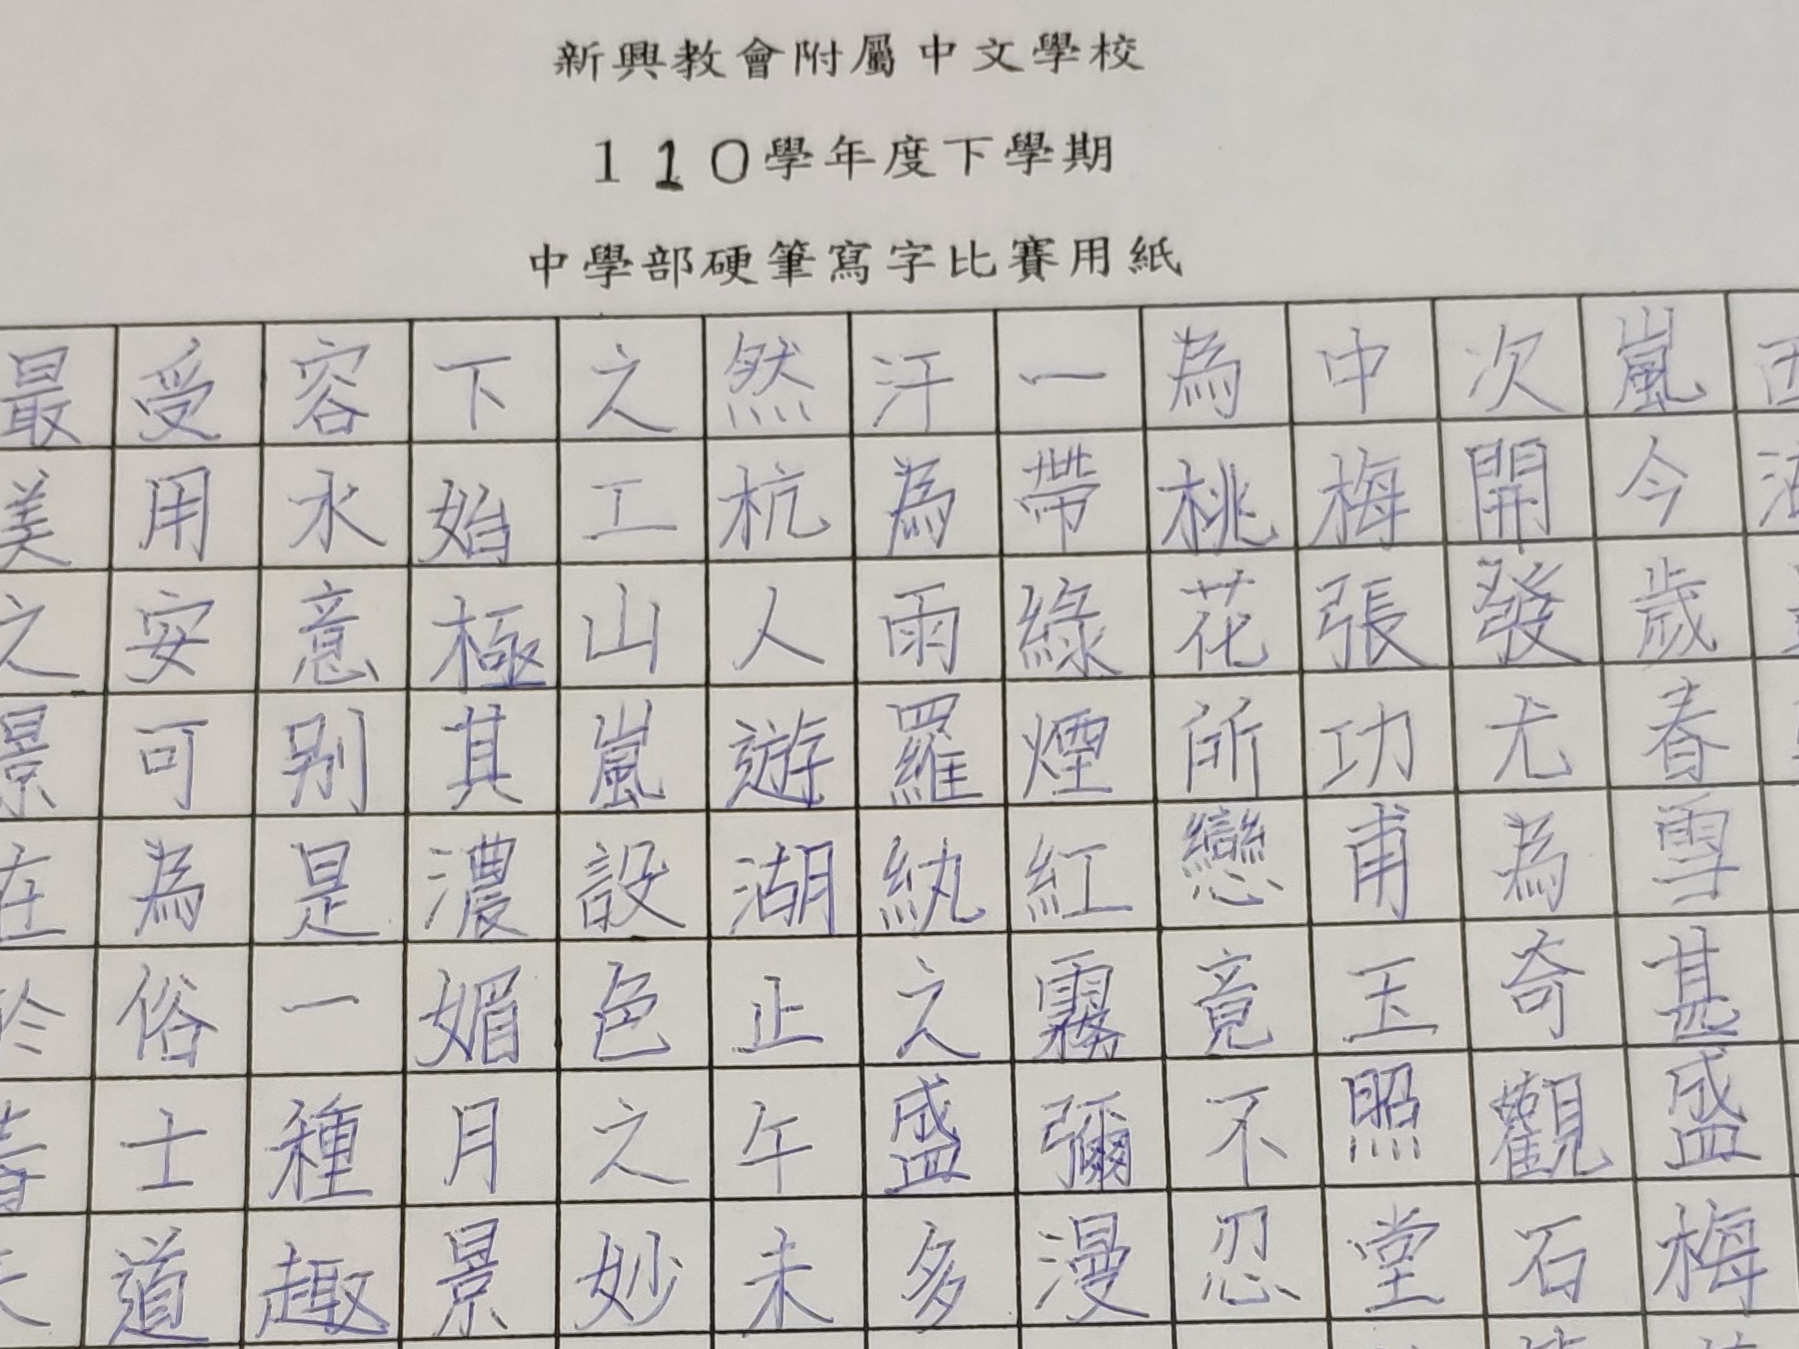 新興教會附屬中文學校
110學年度下學期
中學部硬筆寫字比賽用紙
西湖
嵐今歲春雪甚盛梅
次開發尤為奇觀石
中梅張功甫玉照堂
為桃花所戀竟不忍
一帶綠煙紅霧彌漫
汗為雨羅紈之盛多
然杭人遊湖止午未
之工山嵐設色之妙
下始極其濃媚月景
容水意別是一種趣
受用安可為俗士道
最美之景在於